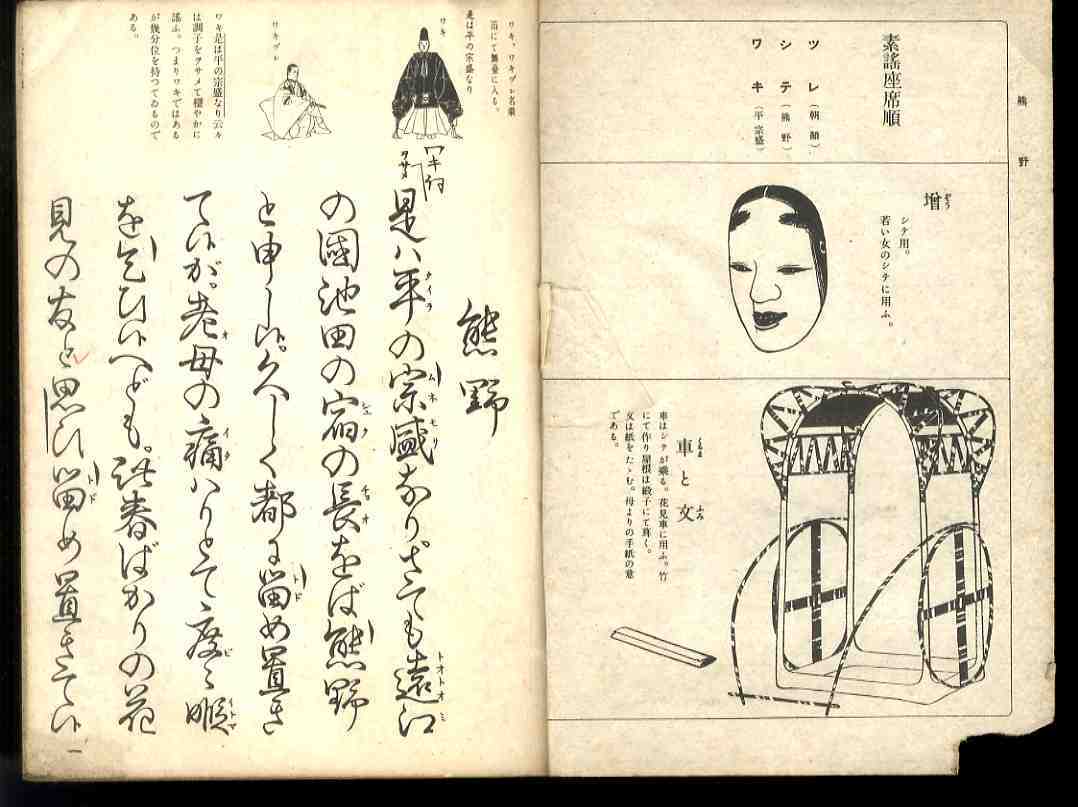 熊野
素謡座席順
ツレ（朝顔）
シテ（熊野）
ワキ（平宗盛）
増
ぞう
シテ用。
若い女のシテに用ふ。
車と文
くるま
ふみ
車はシテが乗る。花見車に用ふ。竹
にて作り屋根は緞子にて葺く。
文は紙をたゝむ。母よりの手紙の意
である。
ワキ、ワキヅレ名乗
笛にて舞台に入る。
是は平の宗盛なり
ワキ
ワキヅレ
ワキ是は平の宗盛なり云々
は調子をヲサメて穏やかに
謡ふ。つまりワキではある
が幾分位を持つてゐるので
ある。
熊野
ワキ詞
是ハ平の宗盛なり。さても遠江
の國池田の宿の長をば熊野
と申し候。久しく都に留め置き
て候が。老母の痛ハりとて。度々暇
を乞ひ候へども。此春ばかりの花
見の友と思ひ留め置きて候
一